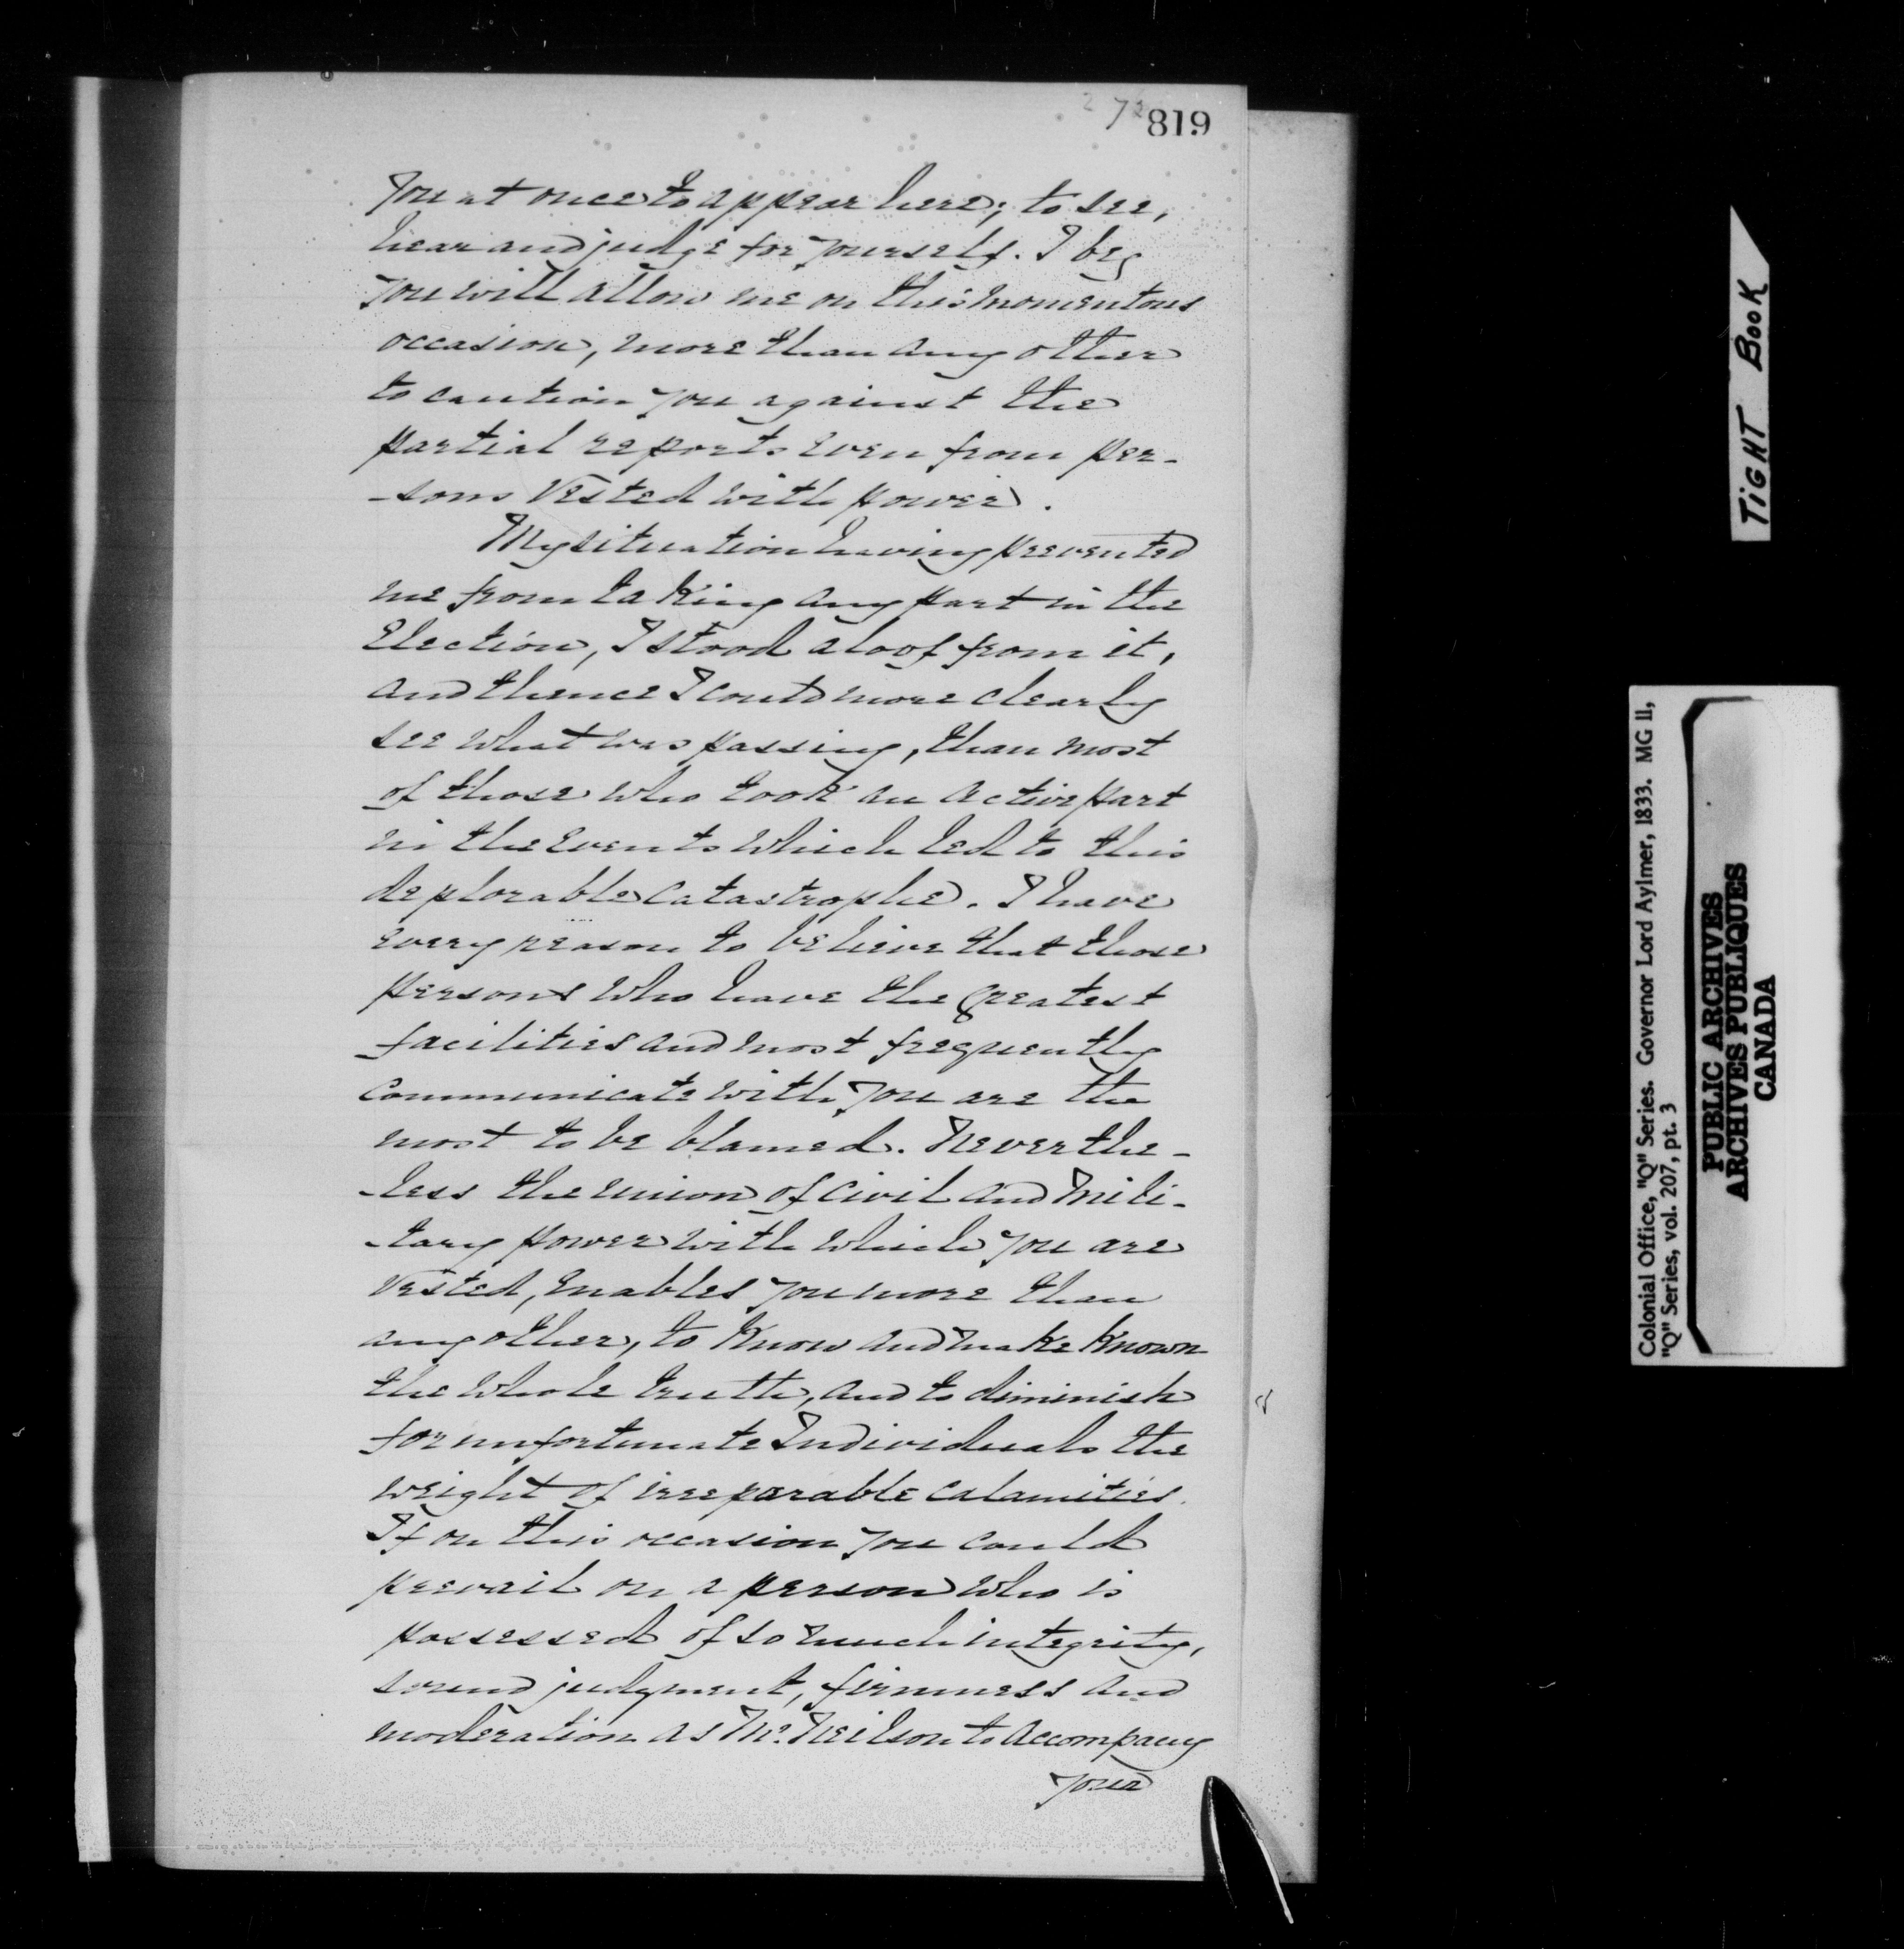 819
you at once to appear here; to see,
hear and judge for yourself. I beg
you will allow me on this momentous
occasion, more than any other
to caution you against the
partial reports even from per-
-sons vested with power.
My situation having prevented
me from taking any part in the
Election, I stood aloof from it,
and thence I could more clearly
see what was passing, than most
of those who took an active part
in the events which led to this
deplorable catastrophe. I have
every reason to believe that those
persons who have the greatest
facilities and most frequently
communicate with you are the
most to be blamed. Neverthe-
-less the union of civil and mili-
-tary power with which you are
vested, enables you more than
any other, to know and make known
the whole truth, and to diminish
for unfortunate Individuals the
weight of irreparable calamities.
If on this occasion you could
prevail on a person who is
possessed of so much integrity,
sound judgment, firmness and
moderation as Mr. Neilson to accompany
your
TIGHT BOOK
Colonial Office, "Q" Series. Governor Lord Aylmer, 1833. MG 11,
"Q" Series, vol. 207, pt. 3
PUBLIC ARCHIVES
ARCHIVES PUBLIQUES
CANADA